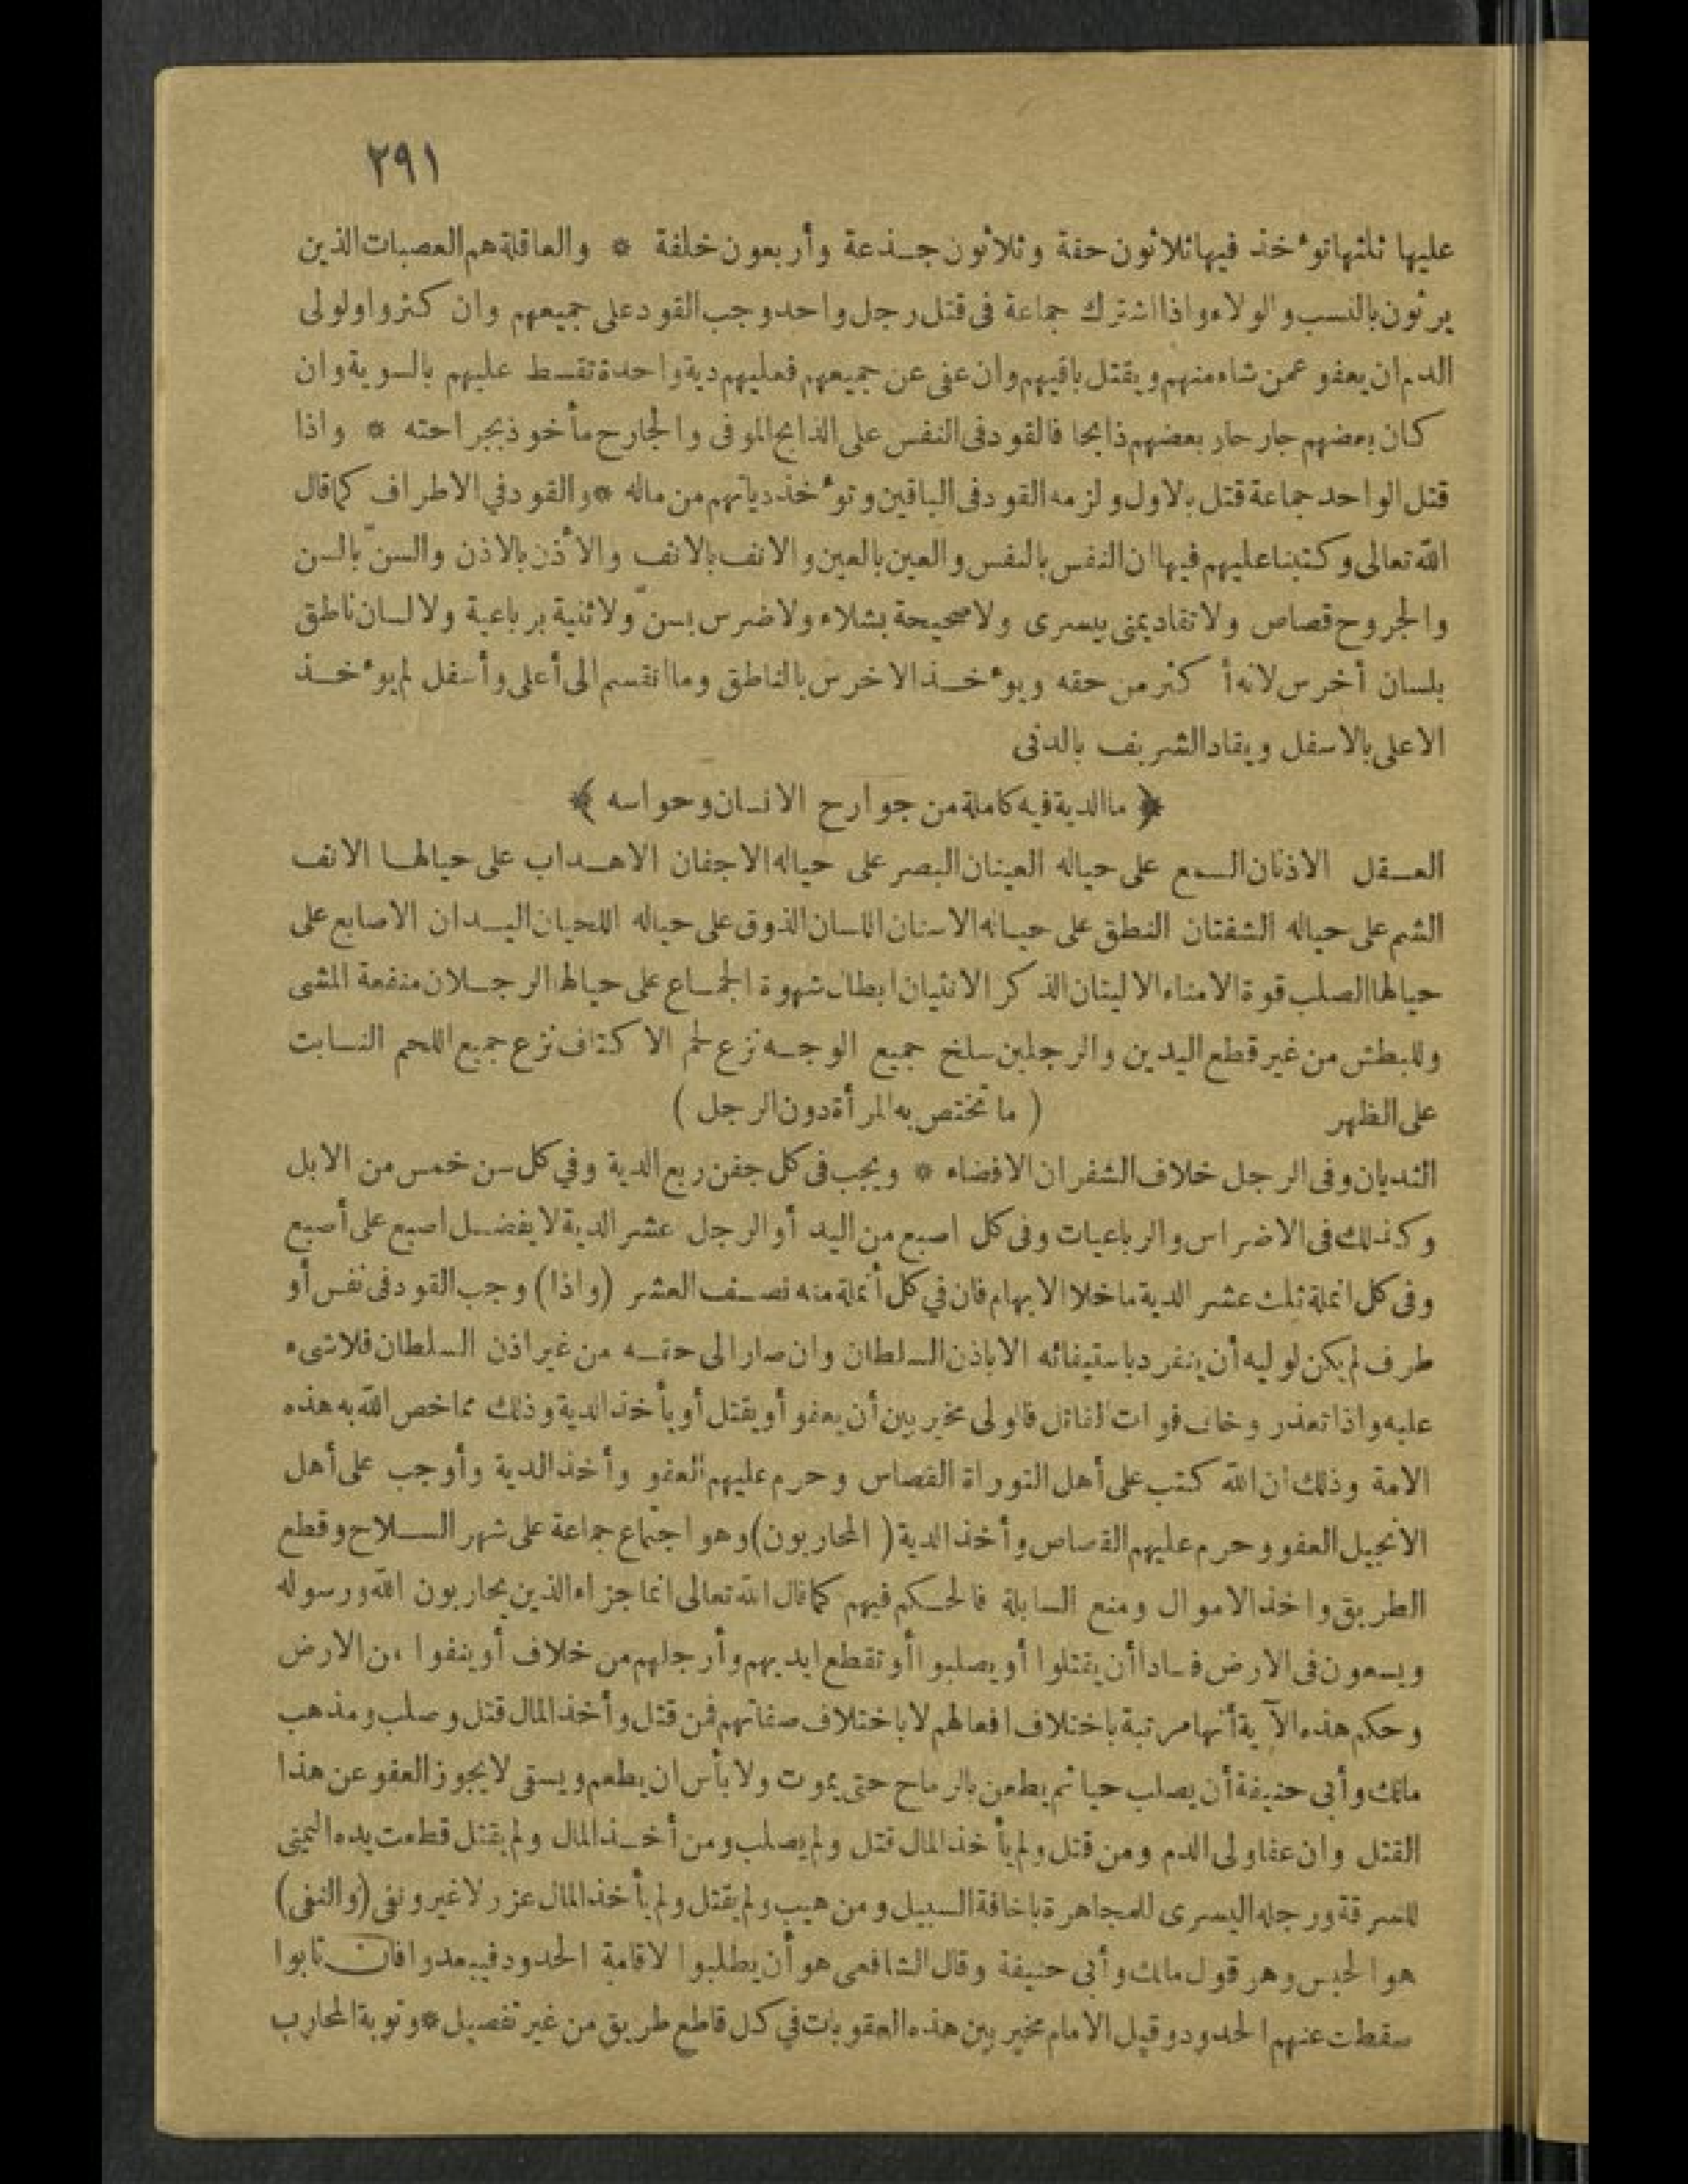 ٢٩١
عليها ثلثها تؤخذ فيها ثلاثون حقة وثلاثون جذعة وأربعون خلفة * والعاقلة هم العصبات الذين
يرثون بالنسب والولاء واذا اشترك جماعة فى قتل رجل واحد وجب القود على جميعهم وان كثروا ولولى
الدم ان يعفو عمن شاء منهم ويقتل باقيهم وان عفى عن جميعهم فعليهم دية واحدة تقسط عليهم بالسوية وان
كان بعضهم جارحا وبعضهم ذابحا فالقود فى النفس على الذابح الموفى والجارح مأخوذ بجراحته * واذا
قتل الواحد جماعة قتل بالاول ولزمه القود فى الباقين وتؤخذ دياتهم من ماله * والقود في الاطراف كما قال
الله تعالى وكتبنا عليهم فيها ان النفس بالنفس والعين بالعين والانف بالانف والأذن بالاذن والسنّ بالسن
والجروح قصاص ولا تقاد يمنى بيسرى ولا صحيحة بشلاء ولا ضرس بسنّ ولا ثنية برباعية ولا لسان ناطق
بلسان أخرس لانه أكثر من حقه ويؤخذ الاخرس بالناطق وما انقسم الى أعلى وأسفل لم يؤخذ
الاعلى بالاسفل ويقاد الشريف بالدنى
﴿ ما الدية فيه كاملة من جوارح الانسان وحواسه ﴾
العقل الاذنان السمع على حياله العينان البصر على حياله الاجفان الاهداب على حيالها الانف
الشم على حياله الشفتان النطق على حياله الاسنان اللسان الذوق على حياله اللحيان اليدان الاصابع على
حيالها الصلب قوة الامناء الاليتان الذكر الانثيان ابطال شهوة الجماع على حيالها الرجلان منفعة المشى
وللبطش من غير قطع اليدين والرجلين سلخ جميع الوجه نزع لحم الاكتاف نزع جميع اللحم النابت
على الظهر ( ما تختص به المرأة دون الرجل )
الثديان وفى الرجل خلاف الشفران الافضاء * ويجب فى كل جفن ربع الدية وفي كل سن خمس من الابل
وكذلك فى الاضراس والرباعيات وفى كل اصبع من اليد أو الرجل عشر الدية لا يفضل اصبع على أصبع
وفى كل انملة ثلث عشر الدية ما خلا الابهام فان في كل أنملة منه نصف العشر (واذا) وجب القود فى نفس أو
طرف لم يكن لوليه أن ينفرد باستيفائه الا باذن السلطان وان صار الى حقه من غير اذن السلطان فلا شىء
عليه واذا تعذر وخاب فوات القاتل فالولى مخير بين أن يعفو أو يقتل أو يأخذ الدية وذلك مما خص الله به هذه
الامة وذلك ان الله كتب على أهل التوراة القصاص وحرم عليهم العفو وأخذ الدية وأوجب على أهل
الانجيل العفو وحرم عليهم القصاص وأخذ الدية ( المحاربون) وهو اجتماع جماعة على شهر السلاح وقطع
الطريق واخذ الاموال ومنع السابلة فالحكم فيهم كما قال الله تعالى انما جزاء الذين يحاربون الله ورسوله
ويسعون فى الارض فسادا أن يقتلوا أو يصلبوا أو تقطع ايديهم وأرجلهم من خلاف أو ينفوا من الارض
وحكم هذه الآية أنها مرتبة باختلاف افعالهم لا باختلاف صفاتهم فمن قتل وأخذ المال قتل وصلب ومذهب
مالك وأبى حنيفة أن يصلب حيا ثم يطعن بالرماح حتى يموت ولا بأس ان يطعم ويسقى لا يجوز العفو عن هذا
القتل وان عفا ولى الدم ومن قتل ولم يأخذ المال قتل ولم يصلب ومن أخذ المال ولم يقتل قطعت يده اليمنى
للسرقة ورجله اليسرى للمجاهرة باخافة السبيل ومن هيب ولم يقتل ولم يأخذ المال عزر لا غير ونفى (والنفى)
هو الحبس وهو قول مالك وأبى حنيفة وقال الشافعى هو أن يطلبوا لاقامة الحدود فيبعدوا فان تابوا
سقطت عنهم الحدود وقيل الامام مخير بين هذه العقوبات في كل قاطع طريق من غير تفصيل * وتوبة المحارب